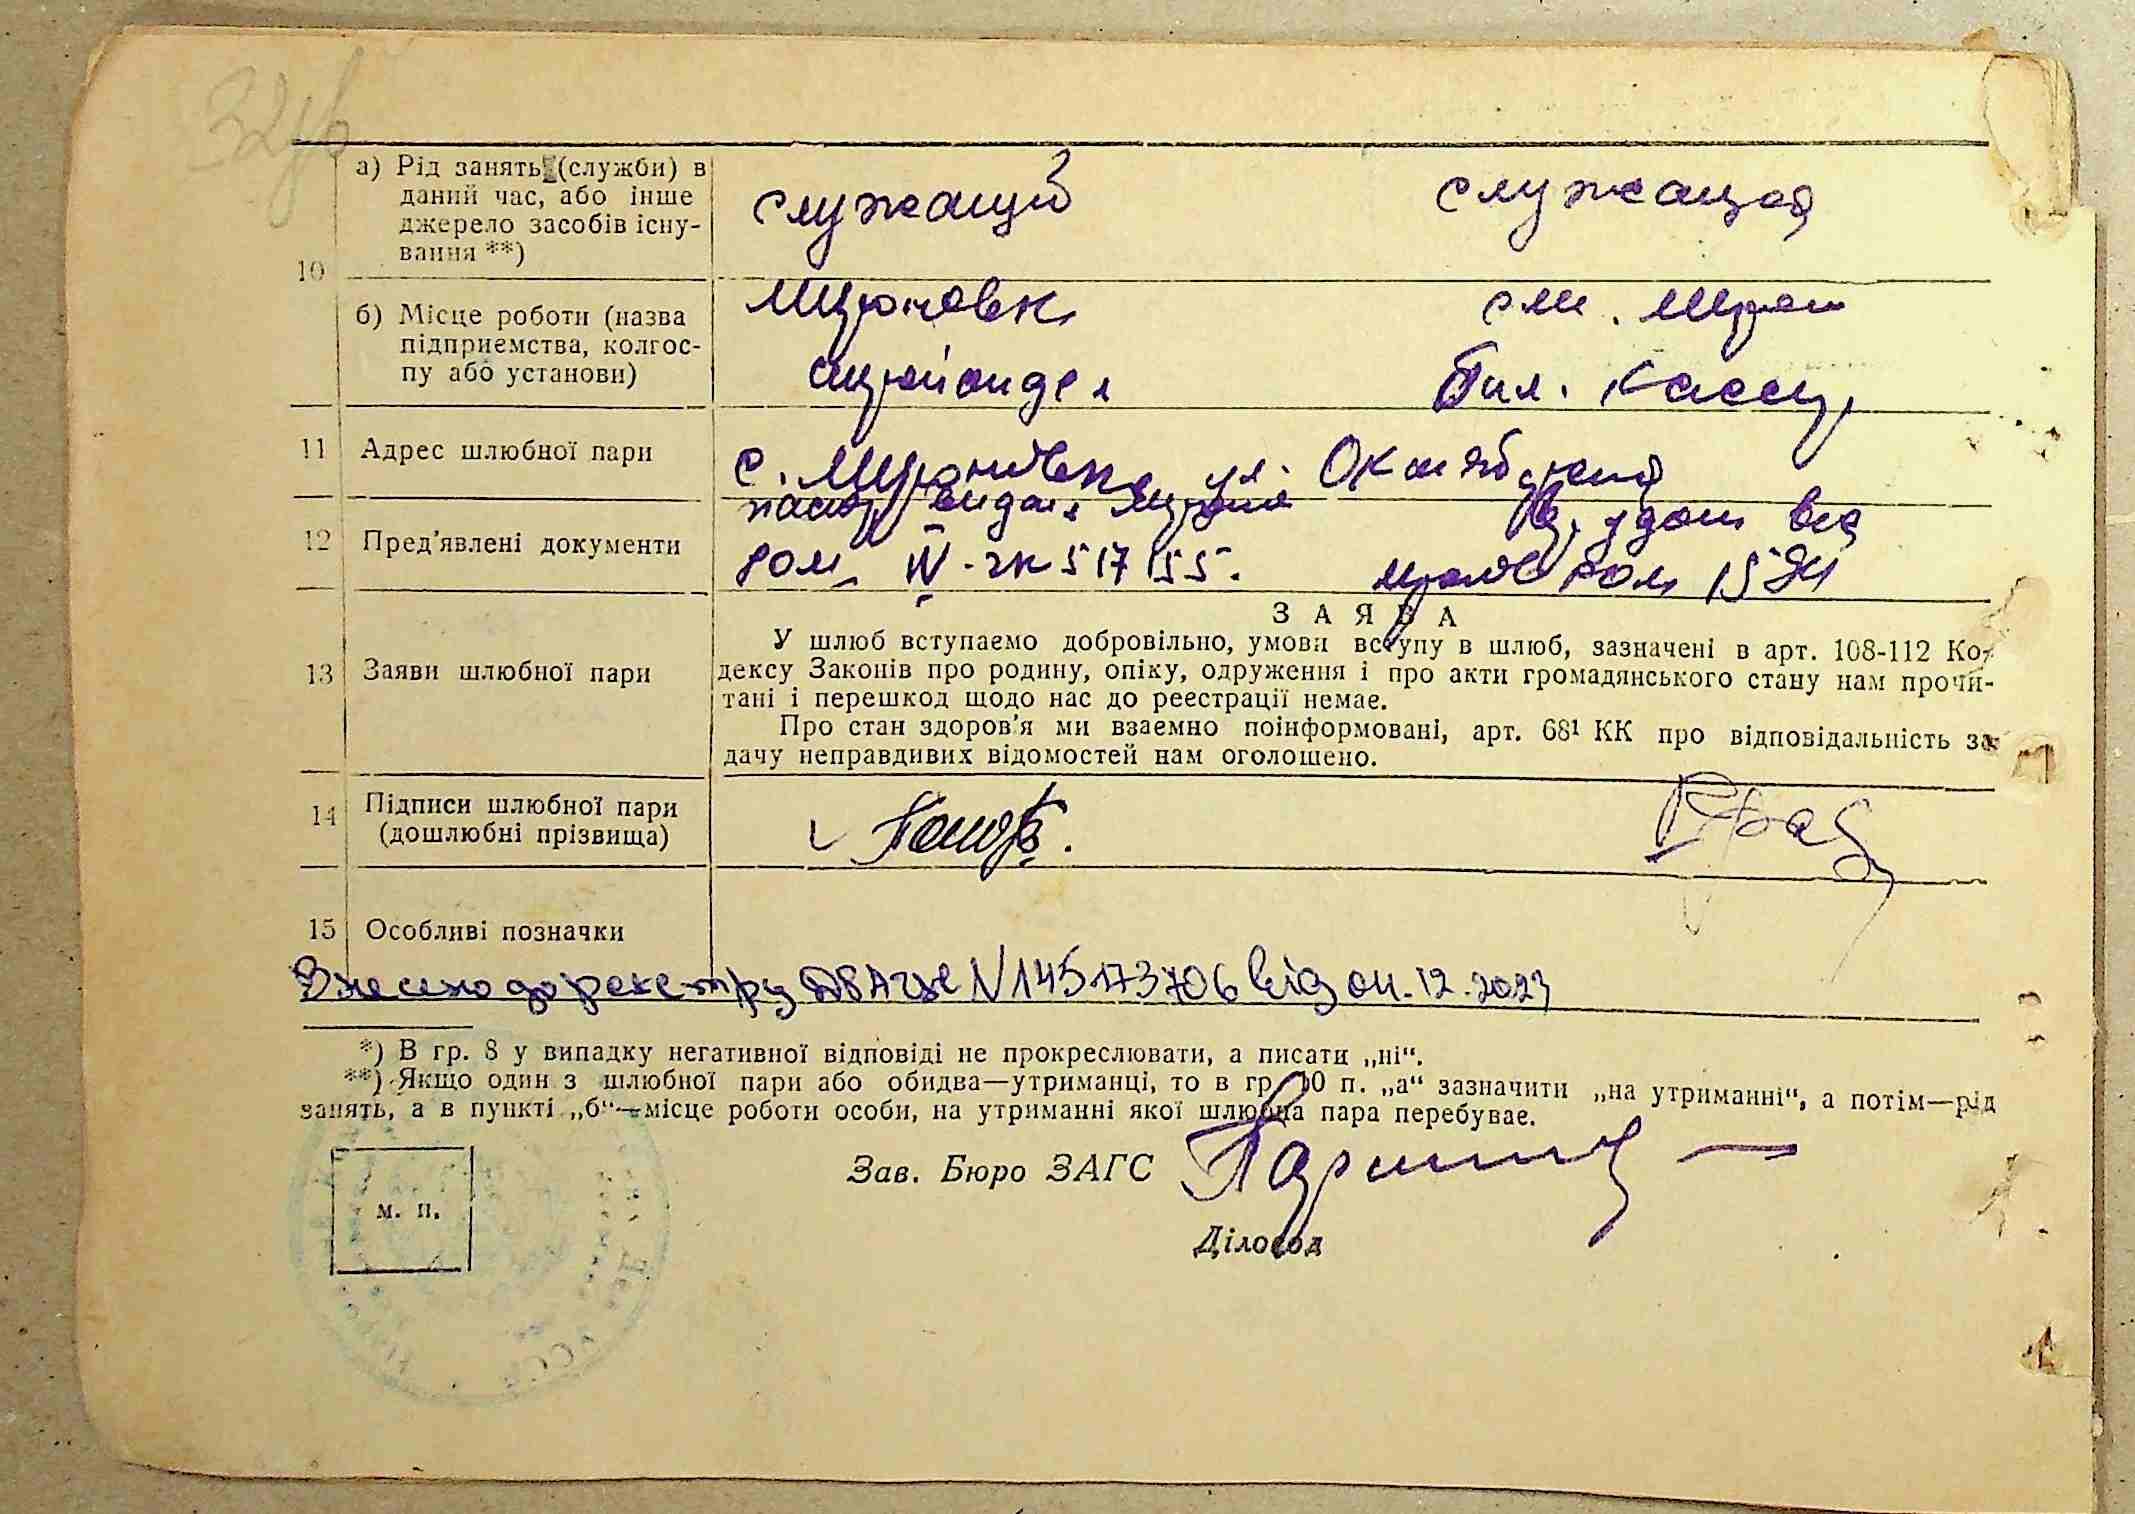 32
а) Рід занять (служби) в
даний час, або інше
джерело засобів існу-
вання **)
служащий
служащая
10
б) Місце роботи (назва
підприємства, колгос-
пу або установи)
ст.
Бил. кассы
11 Адрес шлюбної пари
с. ул. Октябрьская
12 Пред'явлені документи
паспорт видан
ром IV-чк 517155.
ром 1594
13 Заяви шлюбної пари
ЗАЯВА
У шлюб вступаємо добровільно, умови вступу в шлюб, зазначені в арт. 108-112 Ко-
дексу Законів про родину, опіку, одруження і про акти громадянського стану нам прочи-
тані і перешкод щодо нас до реєстрації немає.
Про стан здоров'я ми взаємно поінформовані, арт. 68¹ КК про відповідальність за
дачу неправдивих відомостей нам оголошено.
14 Підписи шлюбної пари
(дошлюбні прізвища)
15 Особливі позначки
Внесено до реєстру ДРАЦС N 145173706 від 04.12.2023
*) В гр. 8 у випадку негативної відповіді не прокреслювати, а писати „ні“.
**) Якщо один з шлюбної пари або обидва—утриманці, то в гр. 10 п. „а“ зазначити „на утриманні“, а потім—рід
занять, а в пункті „б“—місце роботи особи, на утриманні якої шлюбна пара перебуває.
Зав. Бюро ЗАГС
м. п.
Діловод